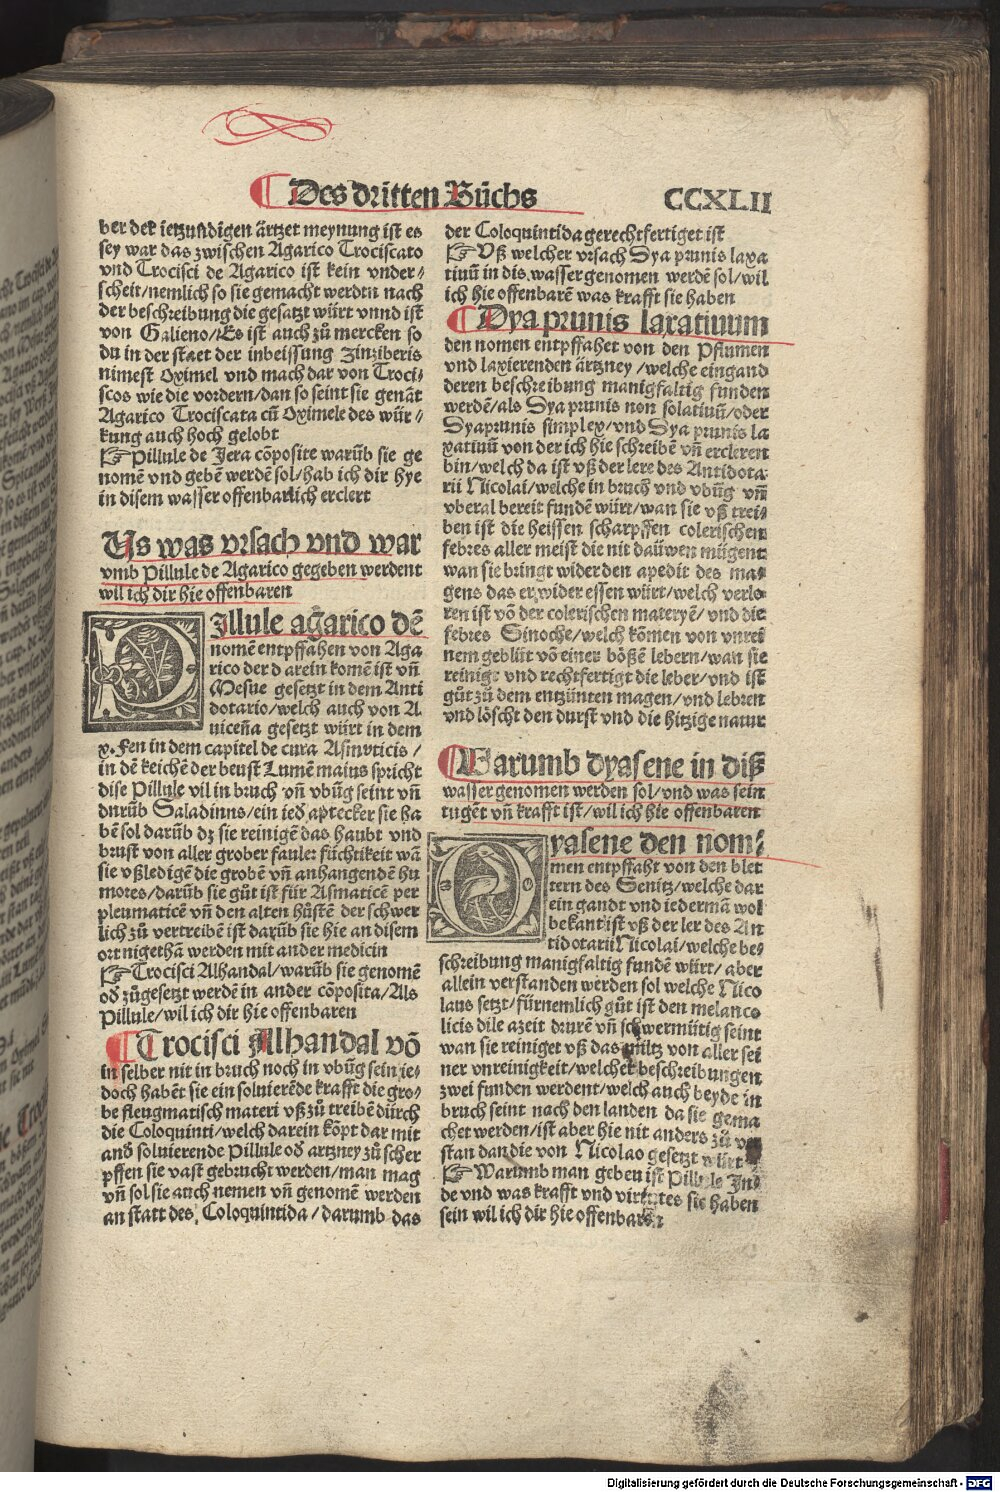 Des dritten Bůchs CCXLII
ber der ietzundigen ärtzet meynung ist es
sey war das zwischen Agarico Trociscato
vnd Trocisci de Agarico ist kein vnder⸗
scheit/nemlich so sie gemacht werdtn nach
der beschreibung die gesatzt würt vnnd ist
von Galieno/Es ist auch zů mercken so
du in der staet der inbeissung Zinziberis
nimest Oximel vnd mach dar von Troci⸗
scos wie die vordern/dan so seint sie genāt
Agarico Trociscata cū Oximele des wür⸗/
kung auch hoch gelobt
☞ Pillule de Jera cōposite warūb sie ge
nomē vnd gebē werdē sol/hab ich dir hye
in disem wasser offenbarlich erclert
Vs was vrsach vnd war
vmb Pillule de Agarico gegeben werdent
wil ich dir hie offenbaren
PIllule agarico dē
nomē entpffahen von Aga
rico der darein komē ist vñ
Mesue gesetzt in dem Anti
dotario/welch auch von A
uiceña gesetzt würt in dem
x. Fen in dem capitel de cura Asmrticis /
in dē keichē der beust Lumē maius spricht
dise Pillule vil in bruch vñ vbūg seint vñ
dnrūb Saladinns/ein ied aptecker sie ha
bē sol darūb dz sie reinigē das haubt vnd
brust von aller grober fauler füchtikeit wā
sie vßledigē die grobē vñ anhangendē hu
mores/darūb sie gůt ist für Asmaticē per
pleumaticē vñ den alten hůstē der schwer
lich zů vertreibē ist darūb sie hie an disem
ort nigethā werden mit ander medicin
☞ Trocisci Alhandal/warūb sie genomē
od zůgesetzt werdē in ander cōposita/Als
Pillule/wil ich dir hie offenbaren
Trocisci Alhandal vō
in selber nit in bruch noch in vbūg sein ie⸗
doch habēt sie ein soluierēde krafft die gro⸗
be fleugmatisch materi vß zů treibē dürch
die Coloquinti/welch darein kōpt dar mit
and soluierende Pillule od artzney zů scher
pffen sie vast gebrucht werden/man mag
vñ sol sie auch nemen vñ genomē werden
an statt des Coloquintida/darumb das
der Coloquintida gerechtfertiget ist
☞ Vß welcher vrsach Dya prunis laxa
tiuū in dis wasser genomen werdē sol/wil
ich hie offenbarē was krafft sie haben
Dya prunis laxatiuum
den nomen entpffahet von den Pflumen
vnd laxierenden ärtzney/welche eingand
deren beschreibung manigfaltig funden
werdē/als Dya prunis non solatiuū/oder
Dyaprunis simplex/vnd Dya prunis la
xatiuū von der ich hie schreibē vñ ercleren
bin/welch da ist vß der lere des Antidota⸗
rii Nicolai/welche in bruch vnd vbūg vñ
vberal bereit fundē würt/wan sie vß trei⸗
ben ist die heissen scharpffen colerischen
febres aller meist die nit dauwen mügent
wan sie bringt wider den apedit des ma⸗
gens das er wider essen würt/welch verlo⸗
ren ist vō der colerischen materyē/vnd die
febres Sinoche/welch kōmen von vnrei
nem geblüt vō einer bößē lebern/wan sie
reinigt vnd rechtfertigt die leber/vnd ist
gůt zů dem entzünten magen/vnd lebren
vnd löscht den durst vnd die hitzige natur
Warumb dyasene in diß
wasser genomen werden sol/vnd was sein
tugēt vñ krafft ist/wil ich hie offenbaren
DYasene den nom⸗
men entpffaht von den blet
tern des Senitz/welche dar
ein gandt vnd iedermā wol
bekant ist vß der ler des An
tidotarii Nicolai/welche be⸗
schreibung manigfaltig fundē würt/ aber
allein verstanden werden sol welche Nico
laus setzt/fürnemlich gůt ist den melanco
licis dile azeit drurē vñ schwermütig seint
wan sie reiniget vß das miltz von aller sei
ner vnreinigkeit/welcher beschreibungen
zwei funden werdent/welch auch beyde in
bruch seint nach den landen da sie gema
chet werden/ist aber hie nit anders zů ver
stan dan die von Nicolao gesetzt würt
☞ Warumb man geben ist Pillule In⸗
de vnd was krafft vnd virtutes sie haben
sein wil ich dir hie offenbaren
Digitalisierung gefördert durch die Deutsche Forschungsgemeinschaft - DFG